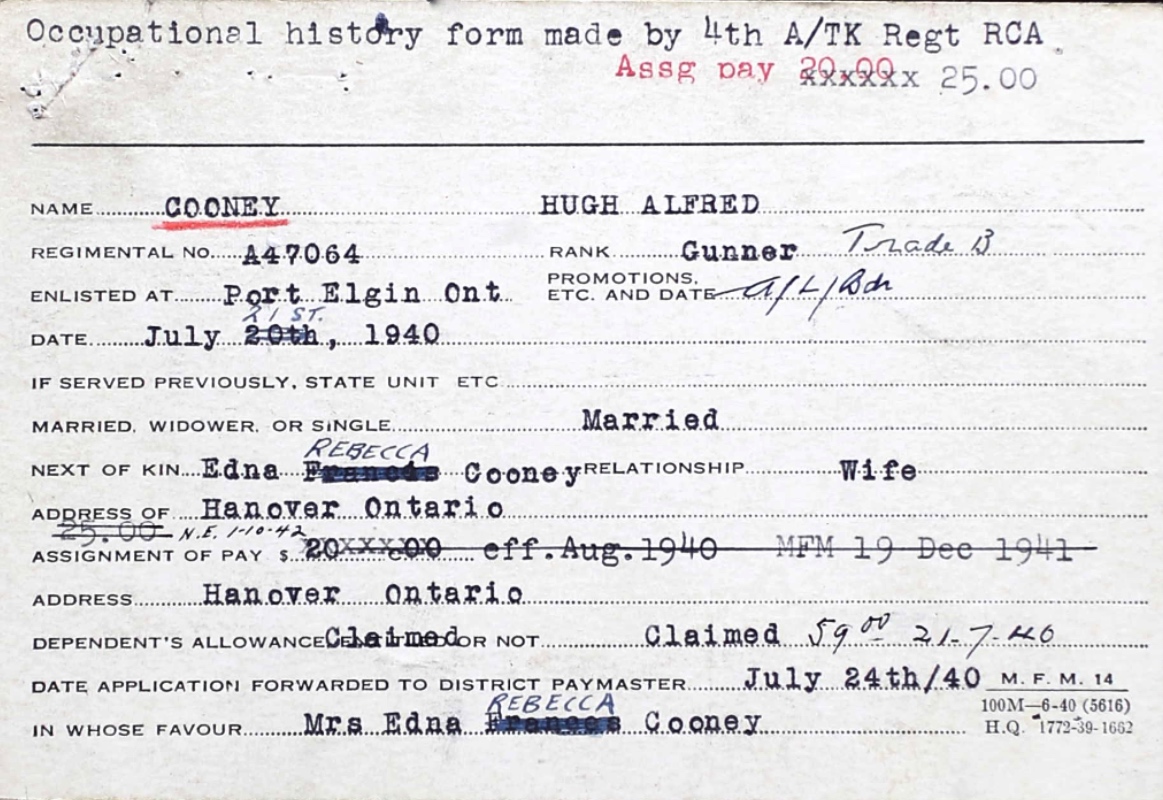 Occupational history form made by 4th A/TK Regt RCA
Assg pay 20.00 xxxxxx 25.00
NAME COONEY HUGH ALFRED
REGIMENTAL NO. A47064 RANK Gunner Trade B
ENLISTED AT Port Elgin Ont PROMOTIONS, ETC. AND DATE A/L/Bdr
21 ST.
DATE July 20th, 1940
IF SERVED PREVIOUSLY, STATE UNIT ETC
MARRIED, WIDOWER, OR SINGLE Married
REBECCA
NEXT OF KIN Edna Frances Cooney RELATIONSHIP Wife
ADDRESS OF Hanover Ontario
25.00 N.E. 1-10-42
ASSIGNMENT OF PAY $ 20xxxx00 eff. Aug. 1940 MFM 19 Dec 1941
ADDRESS Hanover Ontario
DEPENDENT'S ALLOWANCE Claimed OR NOT Claimed 59 00 21-7-40
DATE APPLICATION FORWARDED TO DISTRICT PAYMASTER July 24th/40
REBECCA
IN WHOSE FAVOUR Mrs Edna Frances Cooney
M. F. M. 14
100M—6-40 (5616)
H.Q. 1772-39-1662